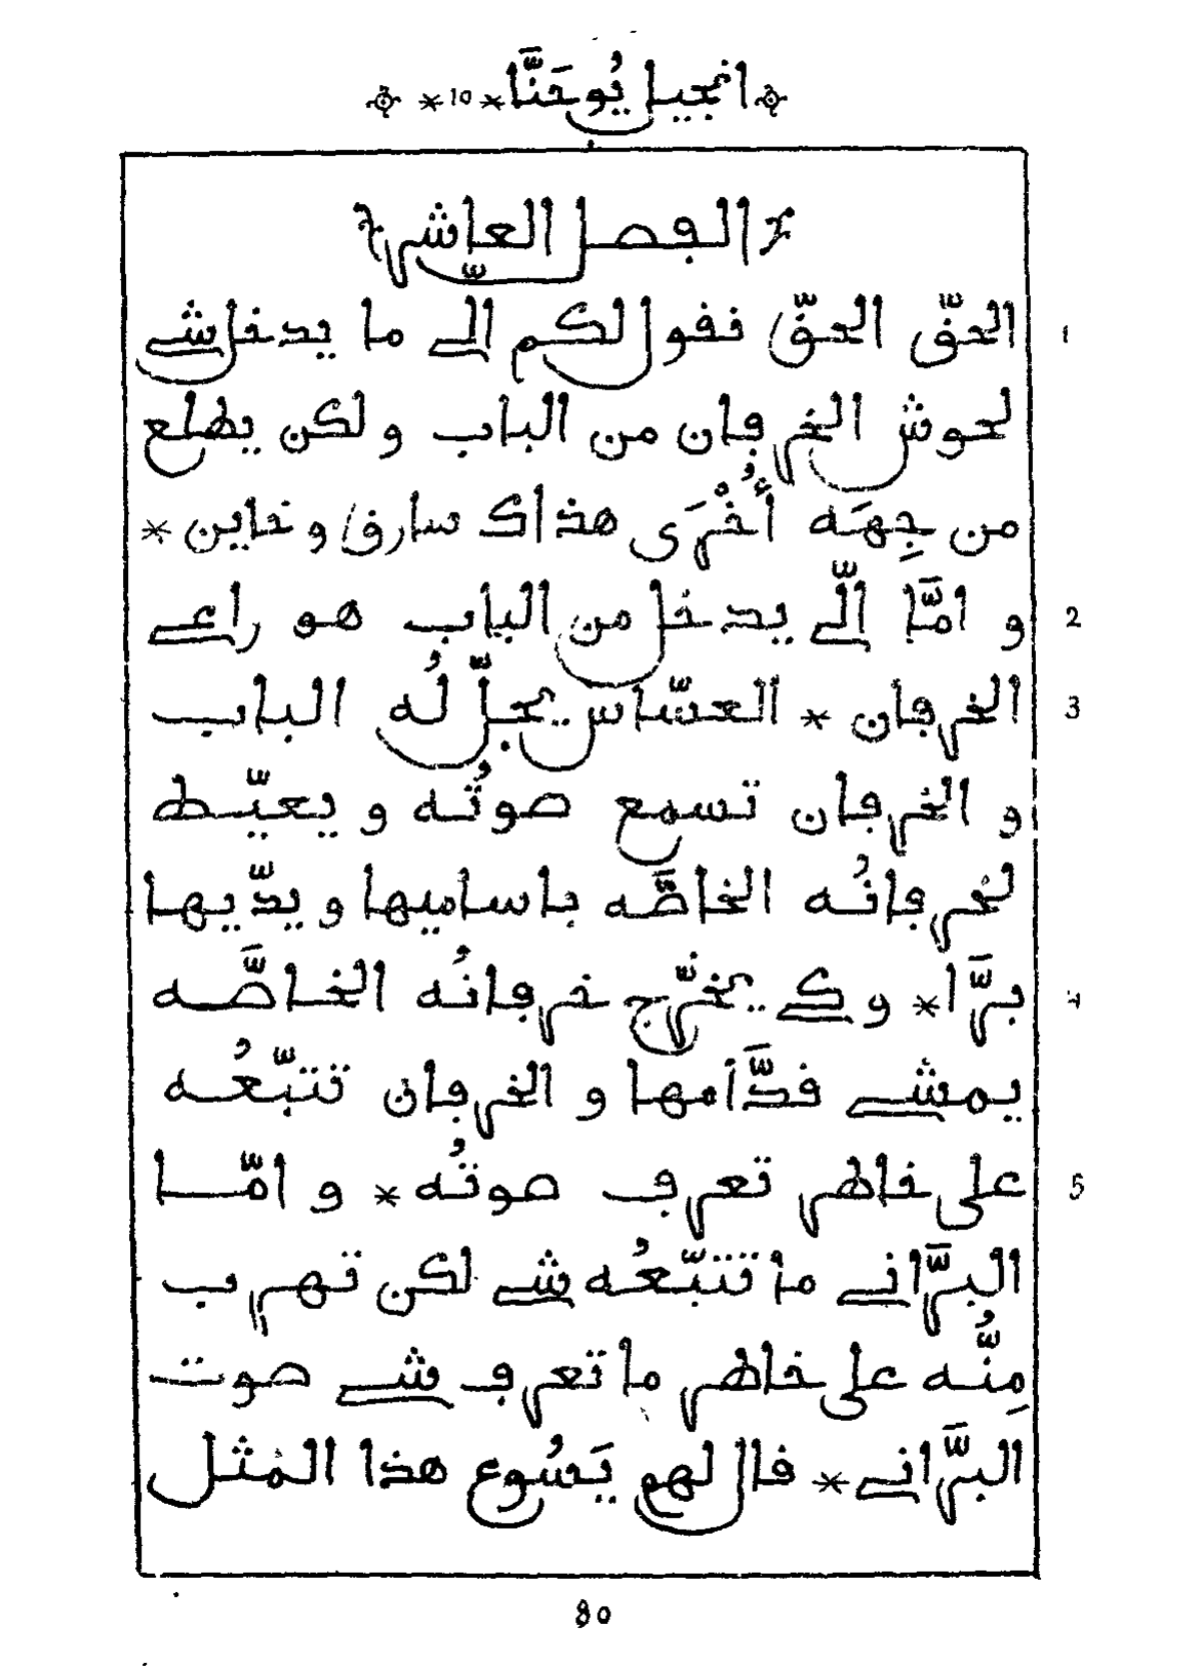 انجيل يُوحَنَّا *10*
الفصل العاشر
1 الحقّ الحقّ نقول لكم الّي ما يدخل شي
لحوش الخرفان من الباب و لكن يطلع
من جِهَه أُخْرَى هذاك سارق و خاين *
2 و امَّا الّي يدخل من الباب هو راعي
3 الخرفان * العسّاس يحلّ لُه الباب
و الخرفان تسمع صوتُه و يعيّط
لخرفانُه الخاصَّه باساميها و يدّيها
4 برَّا * و كي يخرّج خرفانُه الخاصَّه
يمشي قدَّامها و الخرفان تتبّعُه
5 على خاطر تعرف صوتُه * و امّا
البرَّاني ما تتبّعُه شي لكن تهرب
مِنُّه على خاطر ما تعرف شي صوت
البرَّاني * قال لهم يَسُوع هذا المثل
80